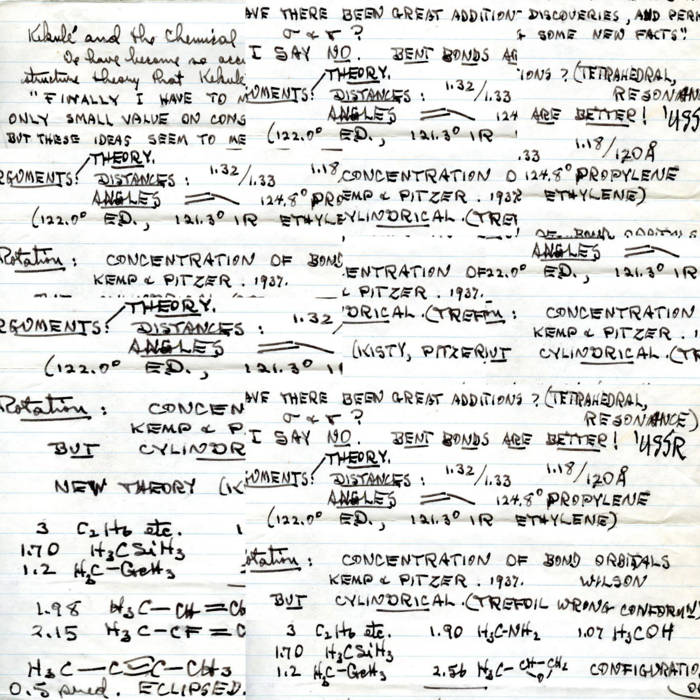 Kekulé and the Chemical
We have become so acc
structure theory that Kekulé
"FINALLY I HAVE TO M
ONLY SMALL VALUE ON CONS
BUT THESE IDEAS SEEM TO ME
THEORY.
RGUMENTS: DISTANCES: 1.32/1.33 1.18/
ANGLES 124.8° PRO
(122.0° ED., 121.3° IR ETHYLE
Rotation: CONCENTRATION OF BOND
KEMP & PITZER. 1937.
AVE THERE BEEN GREAT ADDITION
σ & π?
I SAY NO. BENT BONDS AR
THEORY.
UMENTS: DISTANCES: 1.32/1.33
ANGLES 124
(122.0° ED., 121.3° IR
DISCOVERIES, AND PERH
& SOME NEW FACTS."
IONS? (TETRAHEDRAL,
RESONAN
ARE BETTER! USS
.33 1.18/1.20Å
124.8° PROPYLENE
ETHYLENE)
CONCENTRATION O
EMP & PITZER. 1937
YLINDRICAL. (TREF
ANGLES
22.0° ED., 121.3° IR
ENTRATION OF
& PITZER. 1937.
DRICAL. (TREFOI
(KISTY, PITZER
: CONCENTRATION
KEMP & PITZER. 1
UT CYLINDRICAL. (TR
THEORY.
RGUMENTS: DISTANCES: 1.32
ANGLES
(122.0° ED., 121.3° I
Rotation: CONCEN
KEMP & P
BUT CYLINDR
NEW THEORY (K
3 C2H6 etc.
1.70 H3CSiH3
1.2 H3C–GeH3
1.98 H3C–CH=C
2.15 H3C–CF=C
H3C–C≡C–CH3
0.5 pred. ECLIPSED.
AVE THERE BEEN GREAT ADDITIONS? (TETRAHEDRAL,
σ & π? RESONANCE)
I SAY NO. BENT BONDS ARE BETTER! USSR
THEORY.
UMENTS: DISTANCES: 1.32/1.33 1.18/1.20Å
ANGLES 124.8° PROPYLENE
(122.0° ED., 121.3° IR ETHYLENE)
otation: CONCENTRATION OF BOND ORBITALS
KEMP & PITZER. 1937. WILSON
BUT CYLINDRICAL. (TREFOIL WRONG CONFORM
3 C2H6 etc. 1.90 H3C–NH2 1.07 H3COH
1.70 H3CSiH3
1.2 H3C–GeH3 2.56 H3C–CH–CH2 CONFIGURATIO
O